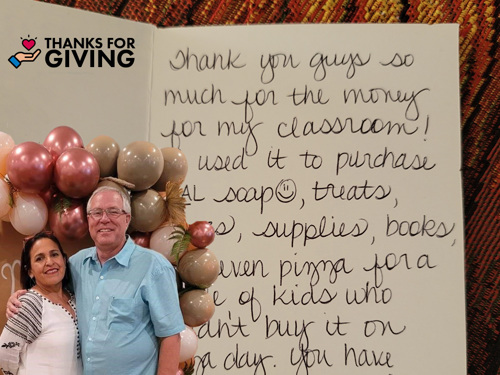 THANKS FOR
GIVING
Thank you guys so
much for the money
for my classroom!
used it to purchase
AL soap☺, treats,
supplies, books,
even pizza for a
of kids who
buy it on
day. you have